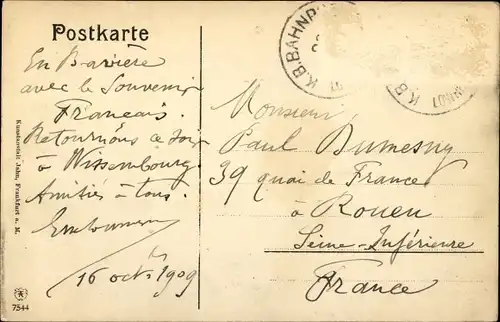 Postkarte
K.B.BAHNP
K.B.
En Bavière
avec le Souvenir
Francais.
Retournons ce soir
à Wissembourg.
Amitiés à tous.
16 oct. 1909
Monsieur
Paul Dumesny
39 quai de France
à Rouen
Seine-Inférieure
France
Kunstanstalt Jahn, Frankfurt a. M.
7544